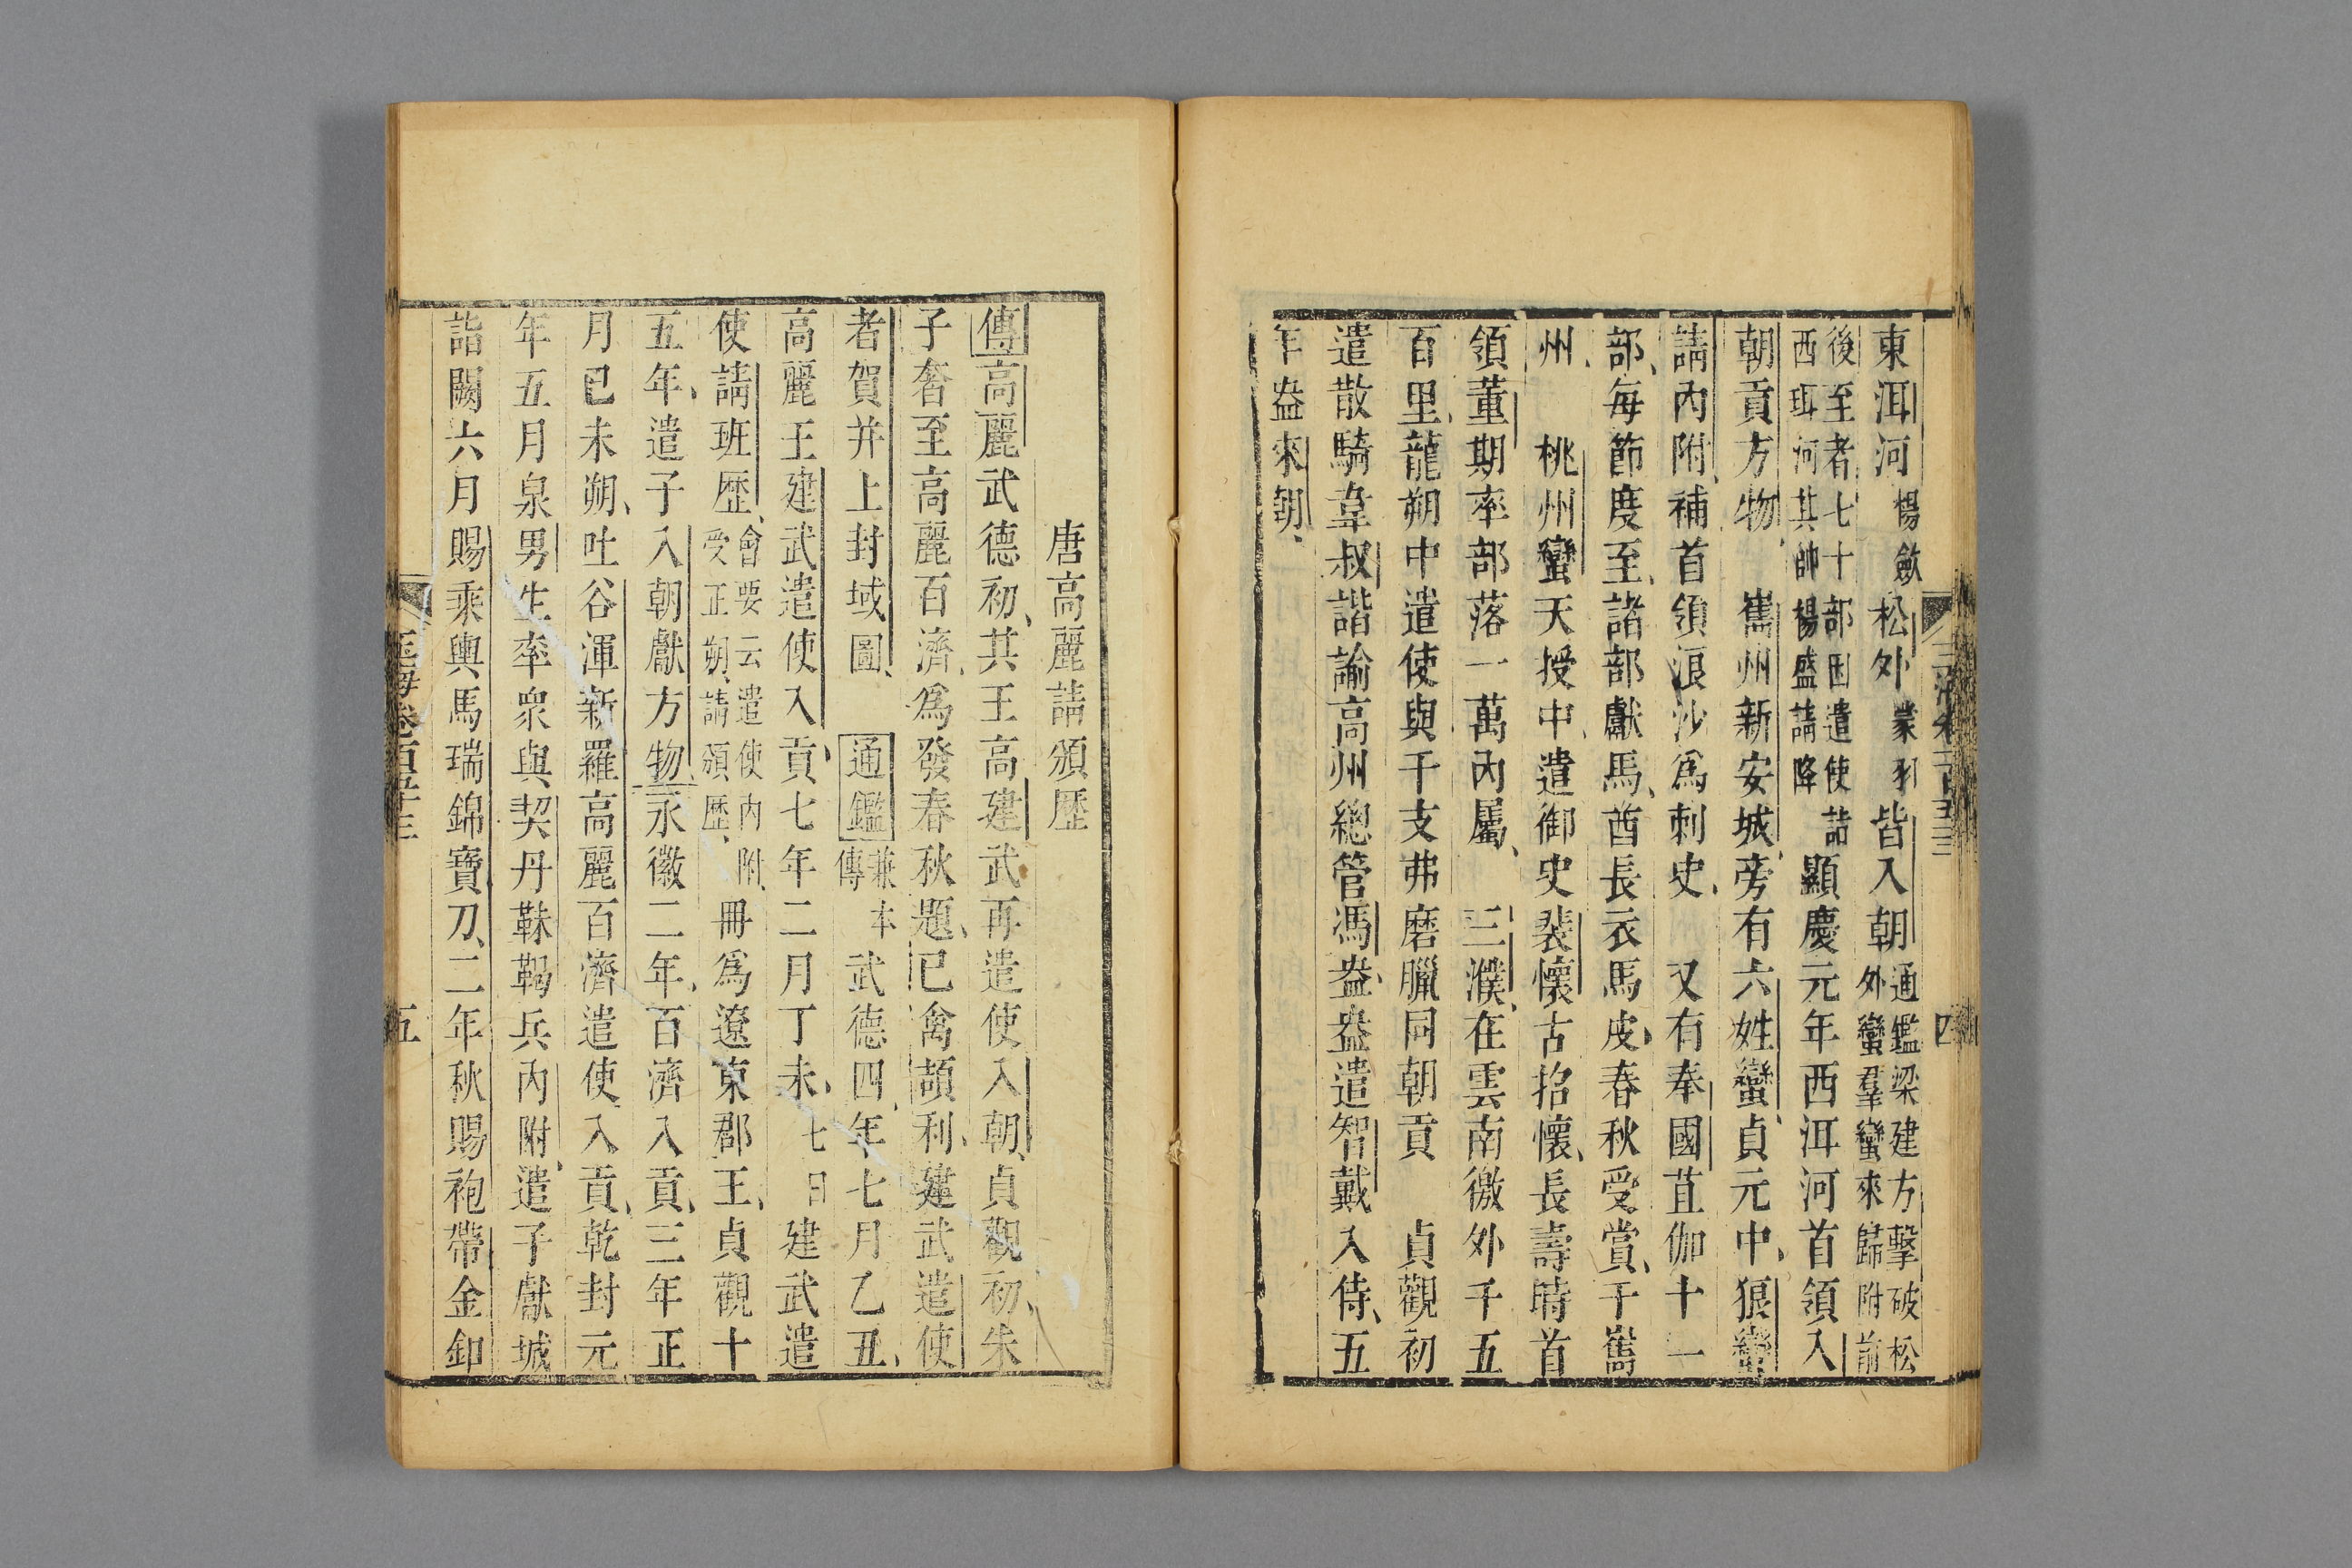 東洱河楊斂松外蒙羽皆入朝通鑑梁建方擊破松外蠻羣蠻來歸附前
後至者七十部因遣使詣西珥河其帥楊盛請降顯慶元年西洱河首領入
朝貢方物 嶲州新安城旁有六姓蠻貞元中狼蠻
請內附補首領浪沙爲刺史 又有奉國苴伽十一
部每節度至諸部獻馬酋長衣馬皮春秋受賞于嶲
州 桃州蠻天授中遣御史裴懷古招懷長壽時首
領董期率部落一萬內屬 三濮在雲南徼外千五
百里龍朔中遣使與千支弗磨臘同朝貢 貞觀初
遣散騎韋叔諧諭高州總管馮盎盎遣智戴入侍五
年盎來朝
四
唐高麗請頒歷
傳高麗武德初其王高建武再遣使入朝貞觀初朱
子奢至高麗百濟爲發春秋題已禽頡利建武遣使
者賀并上封域圖 通鑑兼本傳武德四年七月乙丑
高麗王建武遣使入貢七年二月丁未七日建武遣
使請班歷會要云遣使內附受正朔請頒歷冊爲遼東郡王貞觀十
五年遣子入朝獻方物永徽二年百濟入貢三年正
月已未朔吐谷渾新羅高麗百濟遣使入貢乾封元
年五月泉男生率衆與契丹靺鞨兵內附遣子獻城
詣闕六月賜乘輿馬瑞錦寶刀二年秋賜袍帶金釦
玉海卷百五十三
五